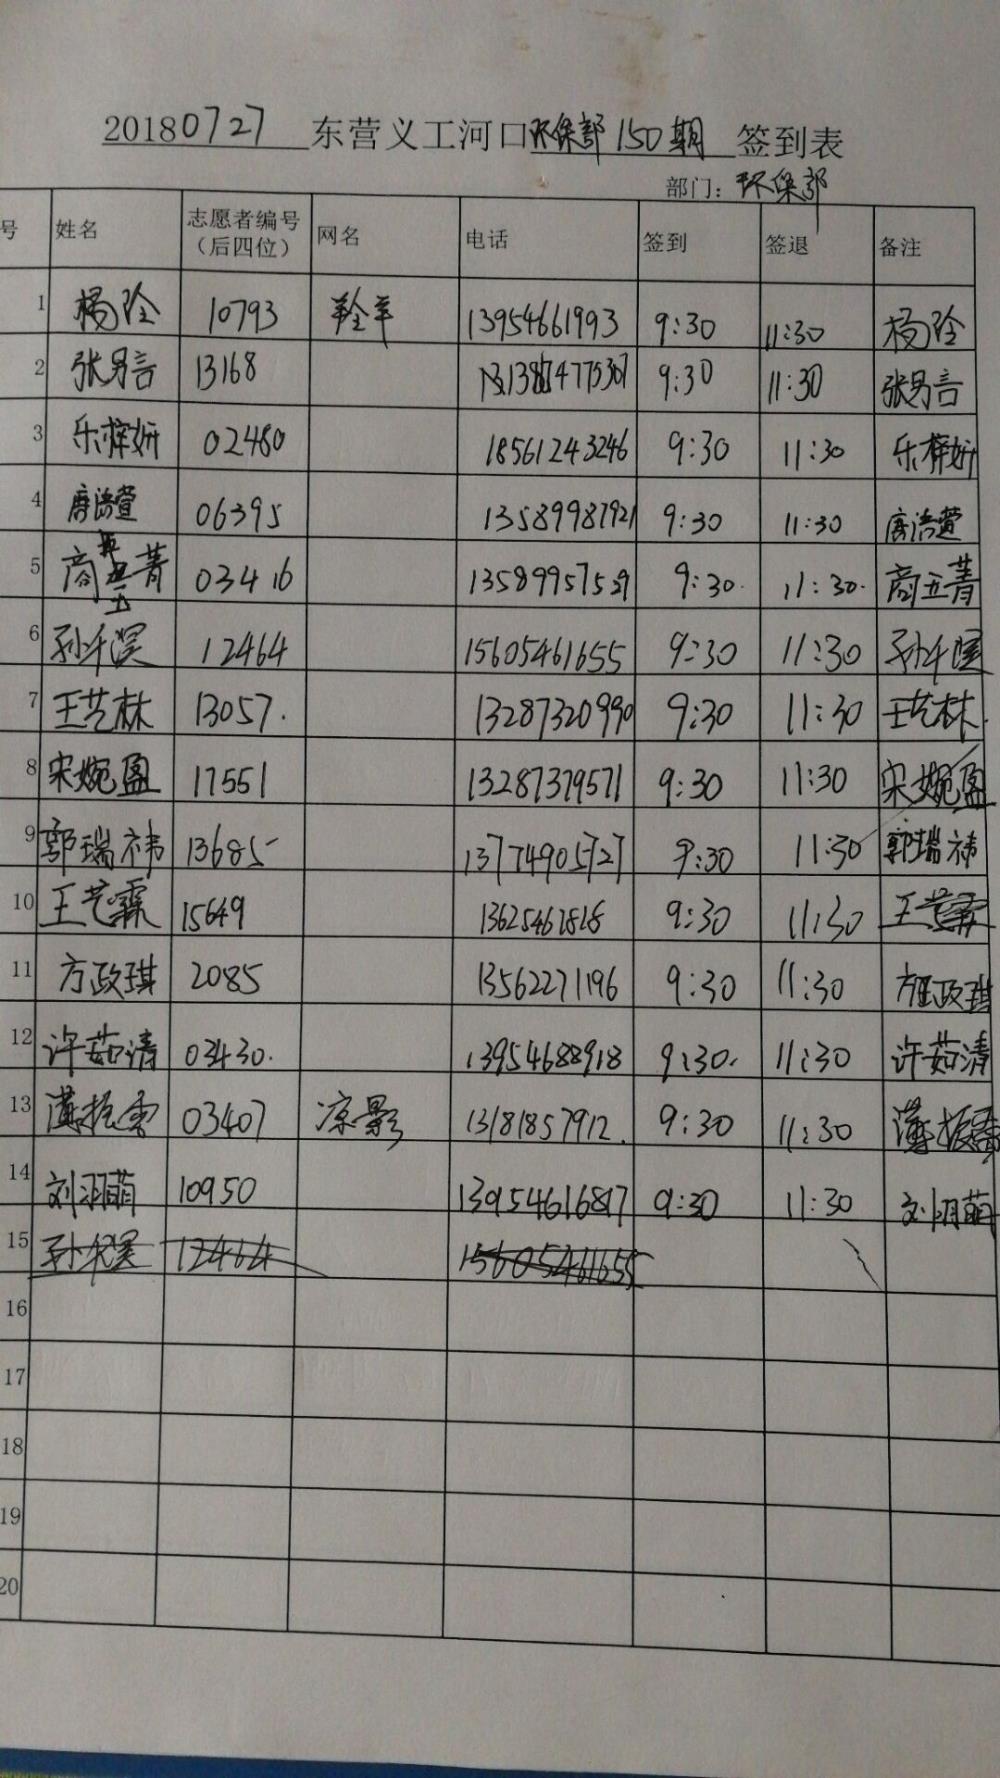 20180727 东营义工河口环保部150期 签到表
部门：环保部
号 姓名 志愿者编号（后四位） 网名 电话 签到 签退 备注
1 杨玲 10793 13954661993 9:30 11:30 杨玲
2 张易言 13168 9:30 11:30 张易言
3 乐梓妍 02480 18561243246 9:30 11:30 乐梓妍
4 唐浩萱 06395 13589987921 9:30 11:30 唐浩萱
5 商五菁 03416 13589957529 9:30 11:30 商五菁
6 孙千淏 12464 15605461655 9:30 11:30 孙千淏
7 王艺林 13057 13287320990 9:30 11:30 王艺林
8 宋婉盈 17551 13287379571 9:30 11:30 宋婉盈
9 郭瑞祎 13685 13774905727 9:30 11:30 郭瑞祎
10 王艺霖 15649 13625461818 9:30 11:30 王艺霖
11 方政琪 2085 13562271196 9:30 11:30 政琪
12 许茹清 03430 13954688918 9:30 11:30 许茹清
13 薄振雪 03407 凉影 13181857912 9:30 11:30 薄振雪
14 刘羽萌 10950 13954616817 9:30 11:30 刘羽萌
15 12464 15605461655
16
17
18
19
20